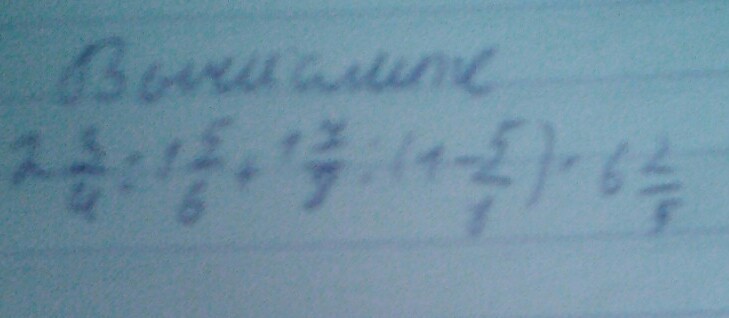 Вычислите
2 3/4 : 1 5/6 + 1 7/8 : (1 - 5/8) · 6 2/5